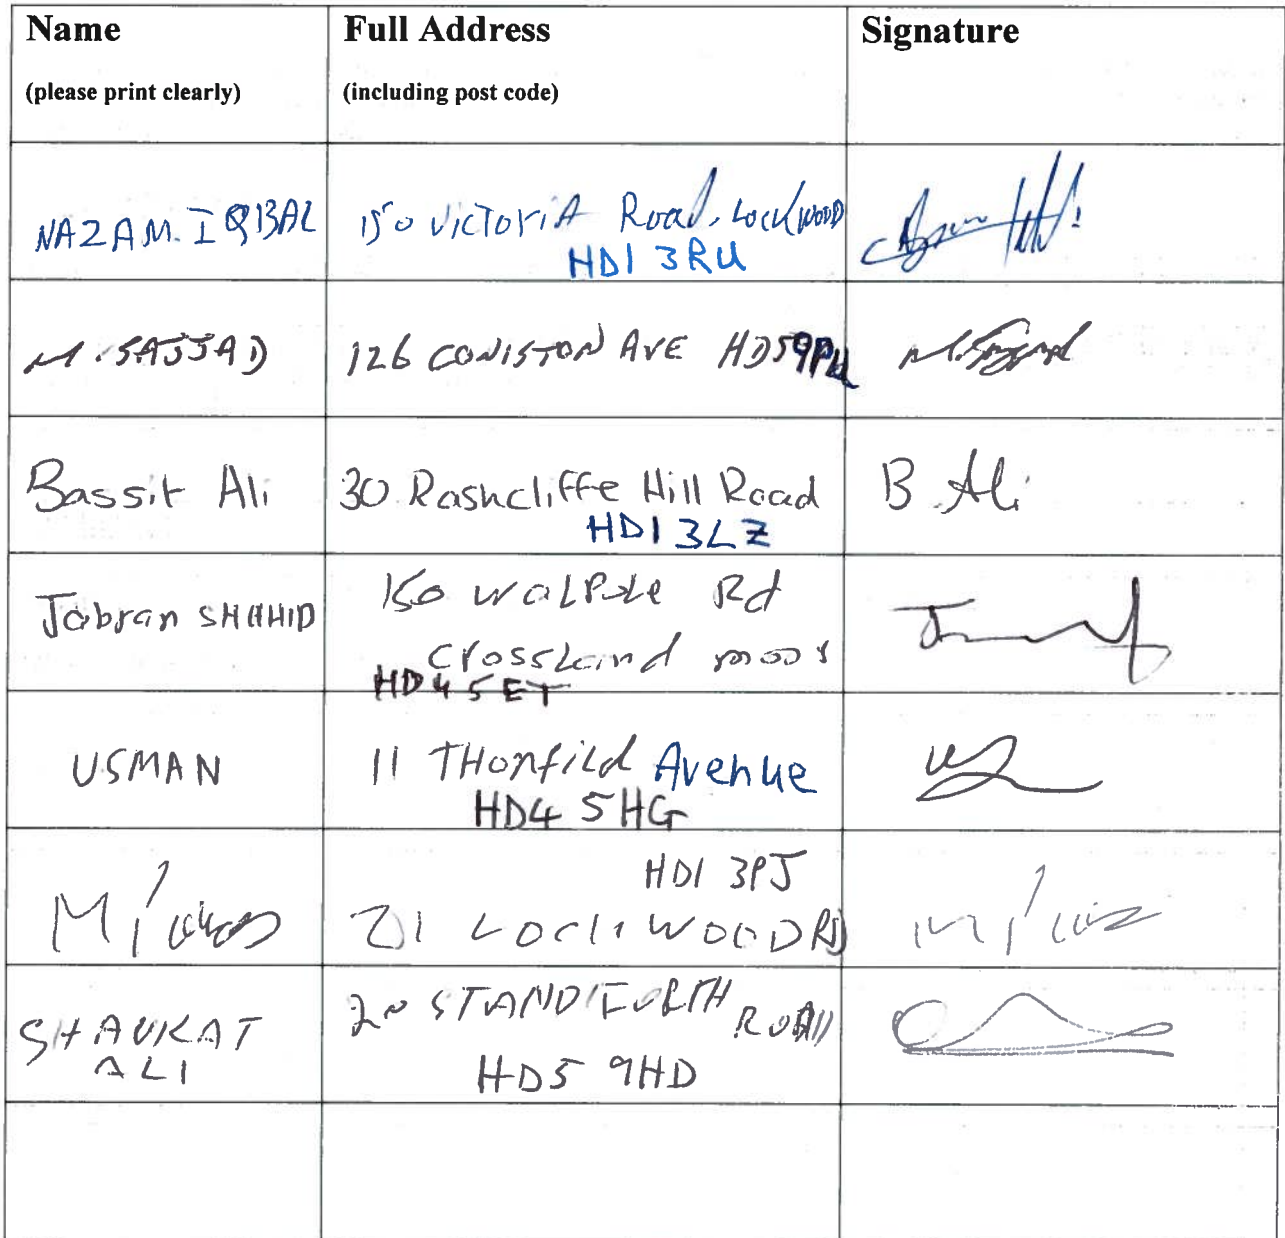 Name
Full Address
Signature
(please print clearly)
(including post code)
NAZAM. IQBAL
150 VICTORIA Road, Lockwood
HD1 3RU
M. SAJJAD
126 CONISTON AVE HD59PU
Bassit Ali
30 Rashcliffe Hill Road
B Ali
HD1 3LZ
Jabran SHAHID
150 walpole Rd
Crossland moor
HD4 5ET
USMAN
11 THonfild Avenue
HD4 5HG
HD1 3PJ
M
21 LOCKWOOD RD
SHAUKAT
ALI
20 STANDIFORTH
ROAD
HD5 9HD